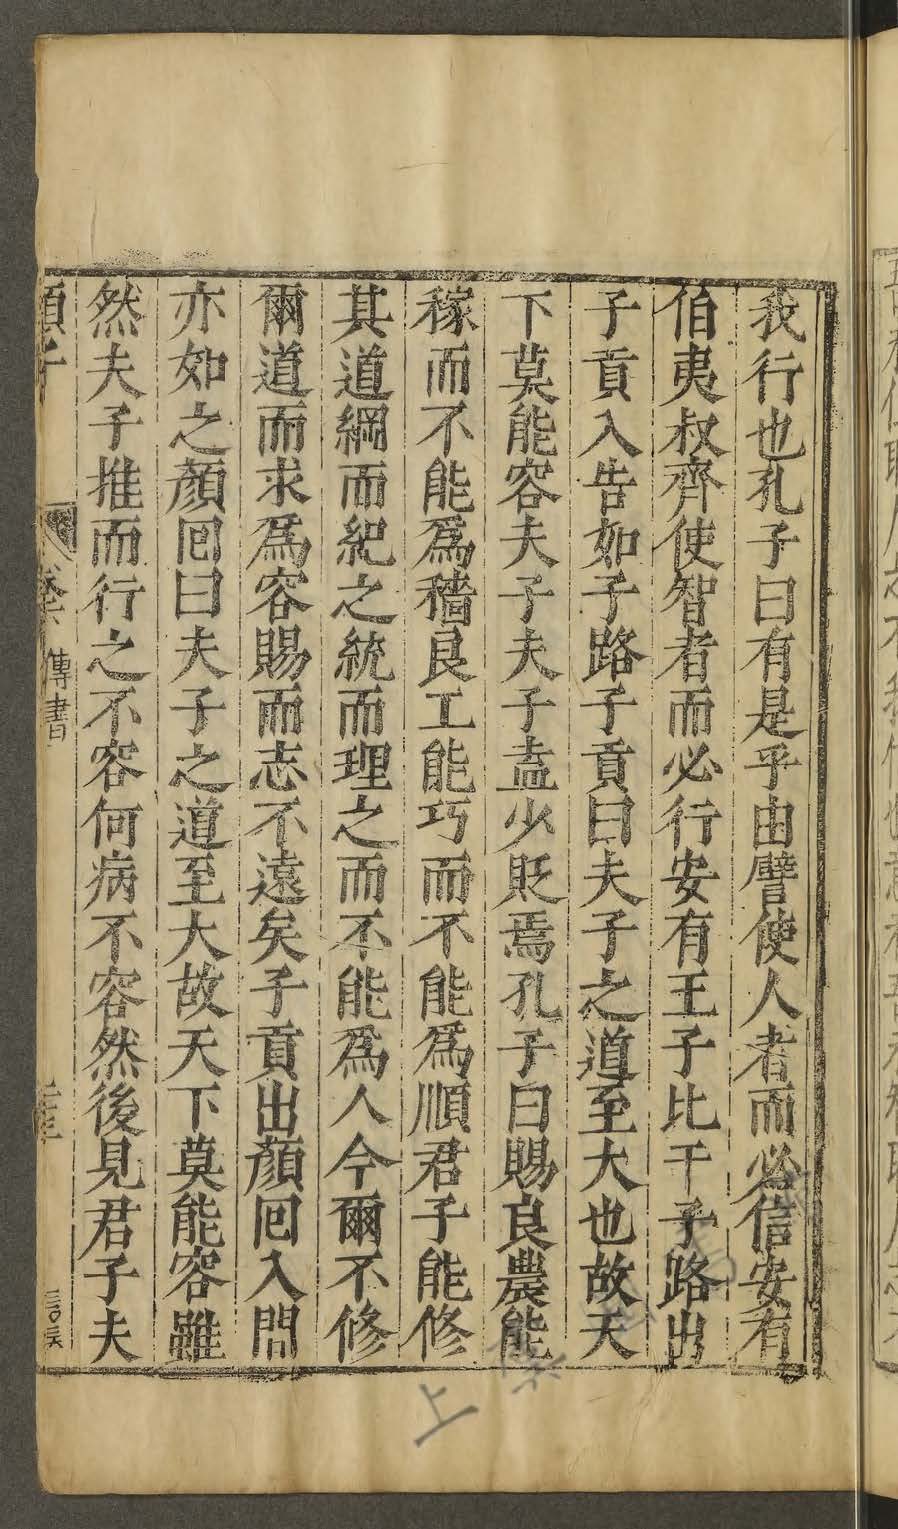 我行也孔子曰有是乎由譬使人者而必信安有
伯夷叔齊使智者而必行安有王子比干子路出
子貢入告如子路子貢曰夫子之道至大也故天
下莫能容夫子夫子盍少貶焉孔子曰賜良農能
稼而不能爲穡良工能巧而不能爲順君子能修
其道綱而紀之統而理之而不能爲人今爾不修
爾道而求爲容賜而志不遠矣子貢出顏回入問
亦如之顏回曰夫子之道至大故天下莫能容雖
然夫子推而行之不容何病不容然後見君子夫
卷六 傳書
上